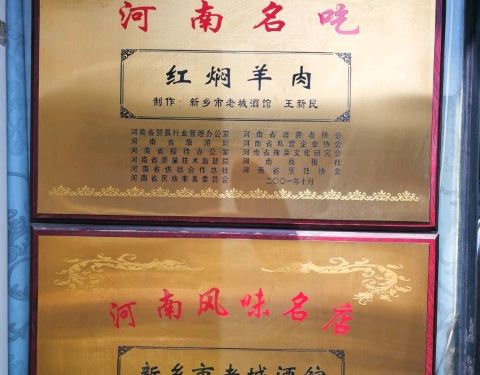 河南名吃
红焖羊肉
制作：新乡市老城酒馆 王新民
河南省贸易行业管理办公室 河南省消费者协会
河南省旅游局 河南省私营企业协会
河南省接待办公室 河南省豫菜文化研究会
河南省质量技术监督局 河南商报社
河南省供销合作总社 河南省烹饪协会
河南省民族事务委员会 二〇〇一年十月
河南风味名店
新乡市老城酒馆